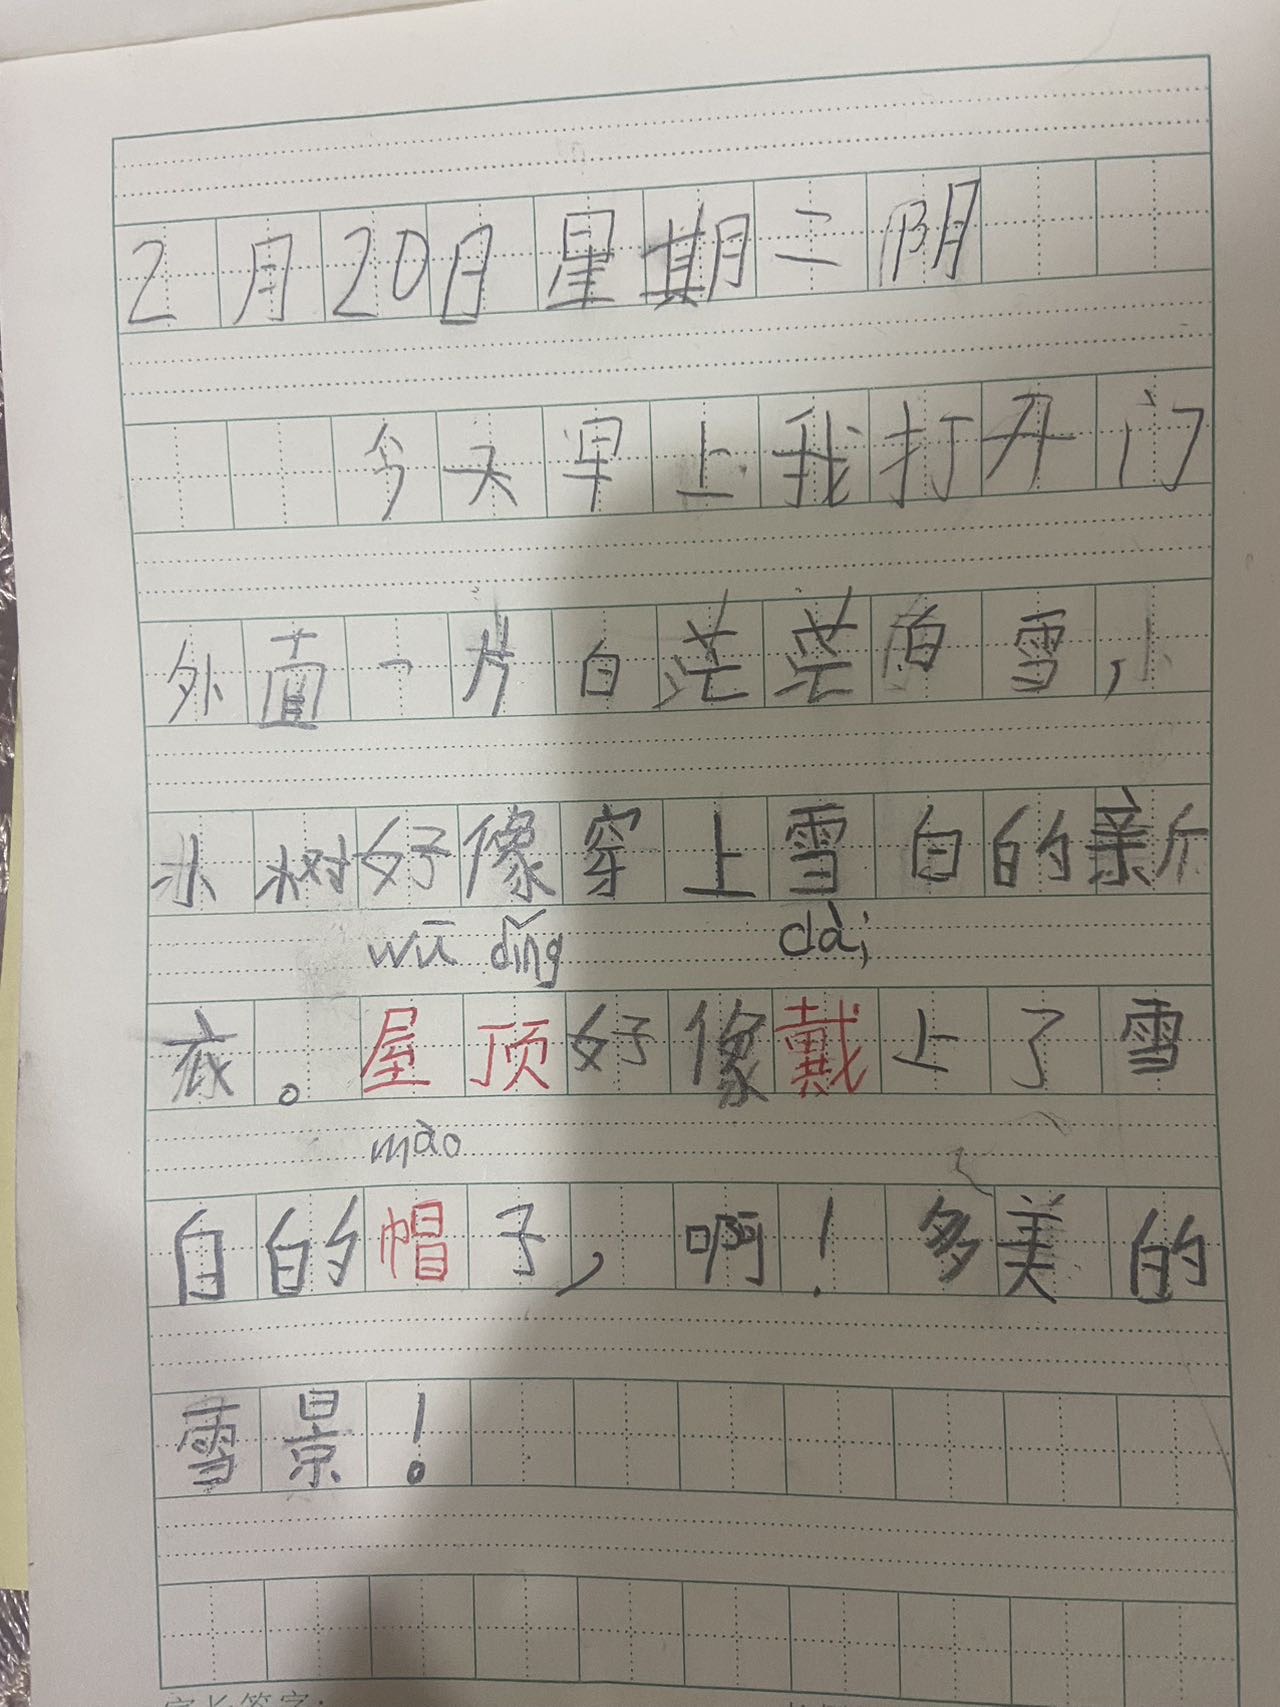 2月20日星期二阴
今天早上我打开门
外面一片白茫茫的雪,小
小树好像穿上雪白的新
wū dǐng dài
衣。屋顶好像戴上了雪
mào
白的帽子,啊!多美的
雪景!